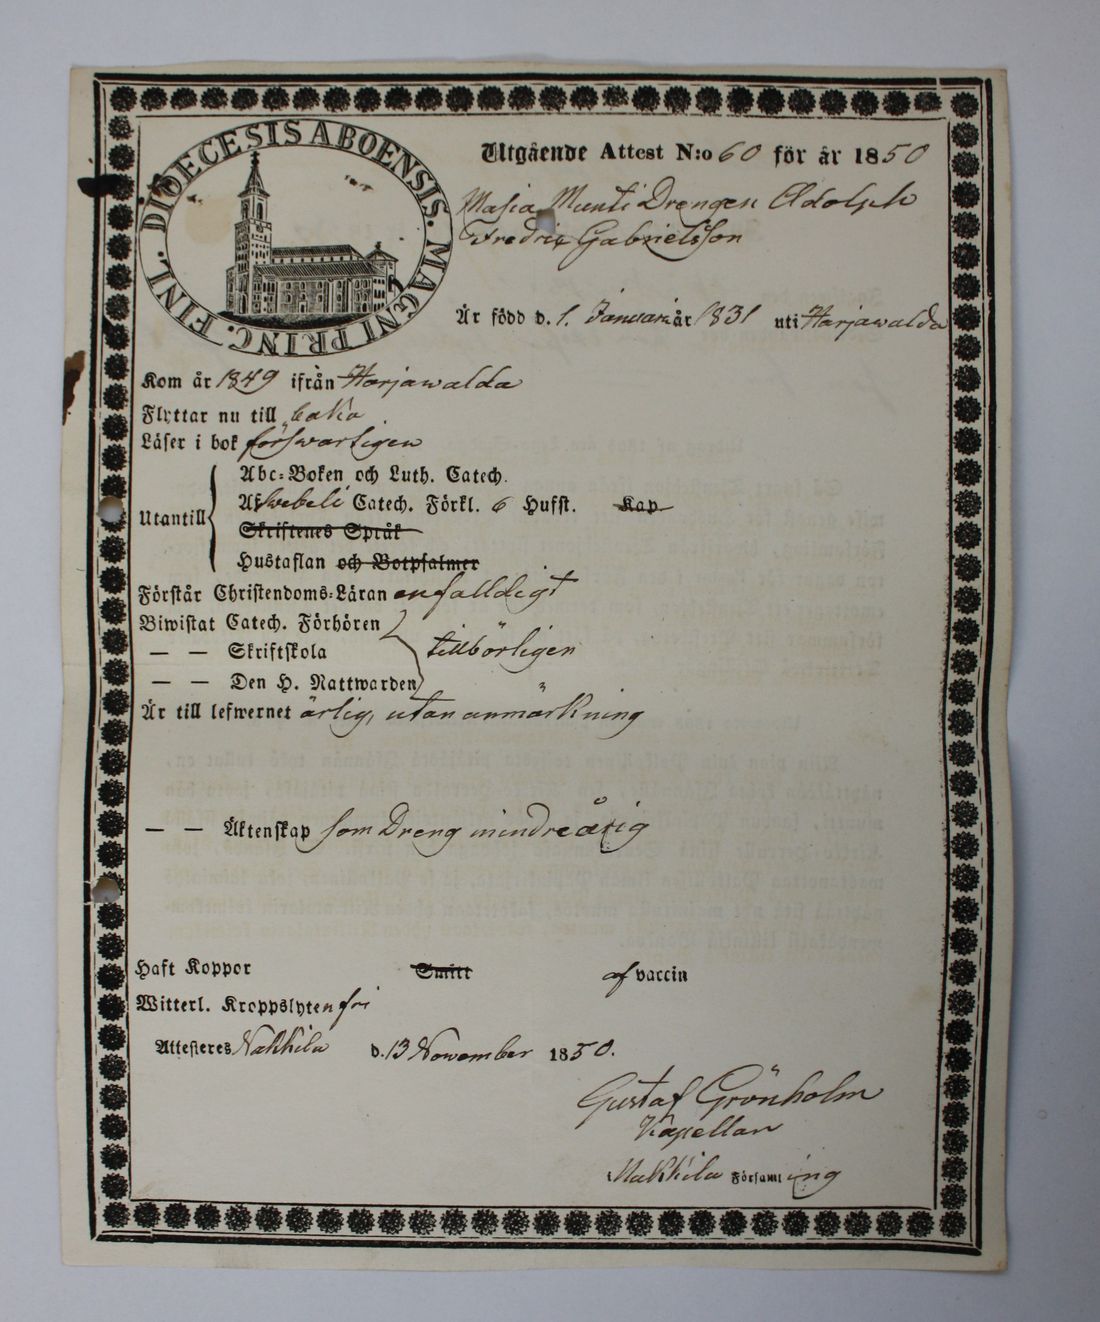 DIOECESIS ABOENSIS. MAGNI PRINC. FINL.
Utgående Attest N:o 60 för år 1850
Drengen Adolph
Fredric Gabrielsson
Är född d. 1. Januarii år 1831 uti Harjawalda
Kom år 1849 ifrån Harjawalda
Flyttar nu till baka
Läser i bok förswarligen
Utantill
Abc-Boken och Luth. Catech.
Af Swebeli Catech. Förkl. 6 Hufst. Kap
Skriftenes Språk
Hustaflan och Botpsalmer
Förstår Christendoms-Läran enfalldigt
Biwistat Catech. Förhören
— — Skriftskola tillbörligen
— — Den H. Nattwarden
Är till lefwernet ärlig, utan anmärkning
— — Äktenskap som Dreng mindreårig
Haft Koppor Smitt af vaccin
Witterl. Kroppslyten fri
Attesteres Nakkila d. 13 November 1850.
Gustaf Grönholm
Kapellan
i Nakkila Församling